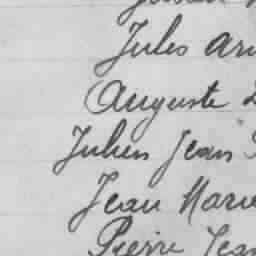 Jules
Auguste
Julien Jean
Jean Marie
Pierre Jean